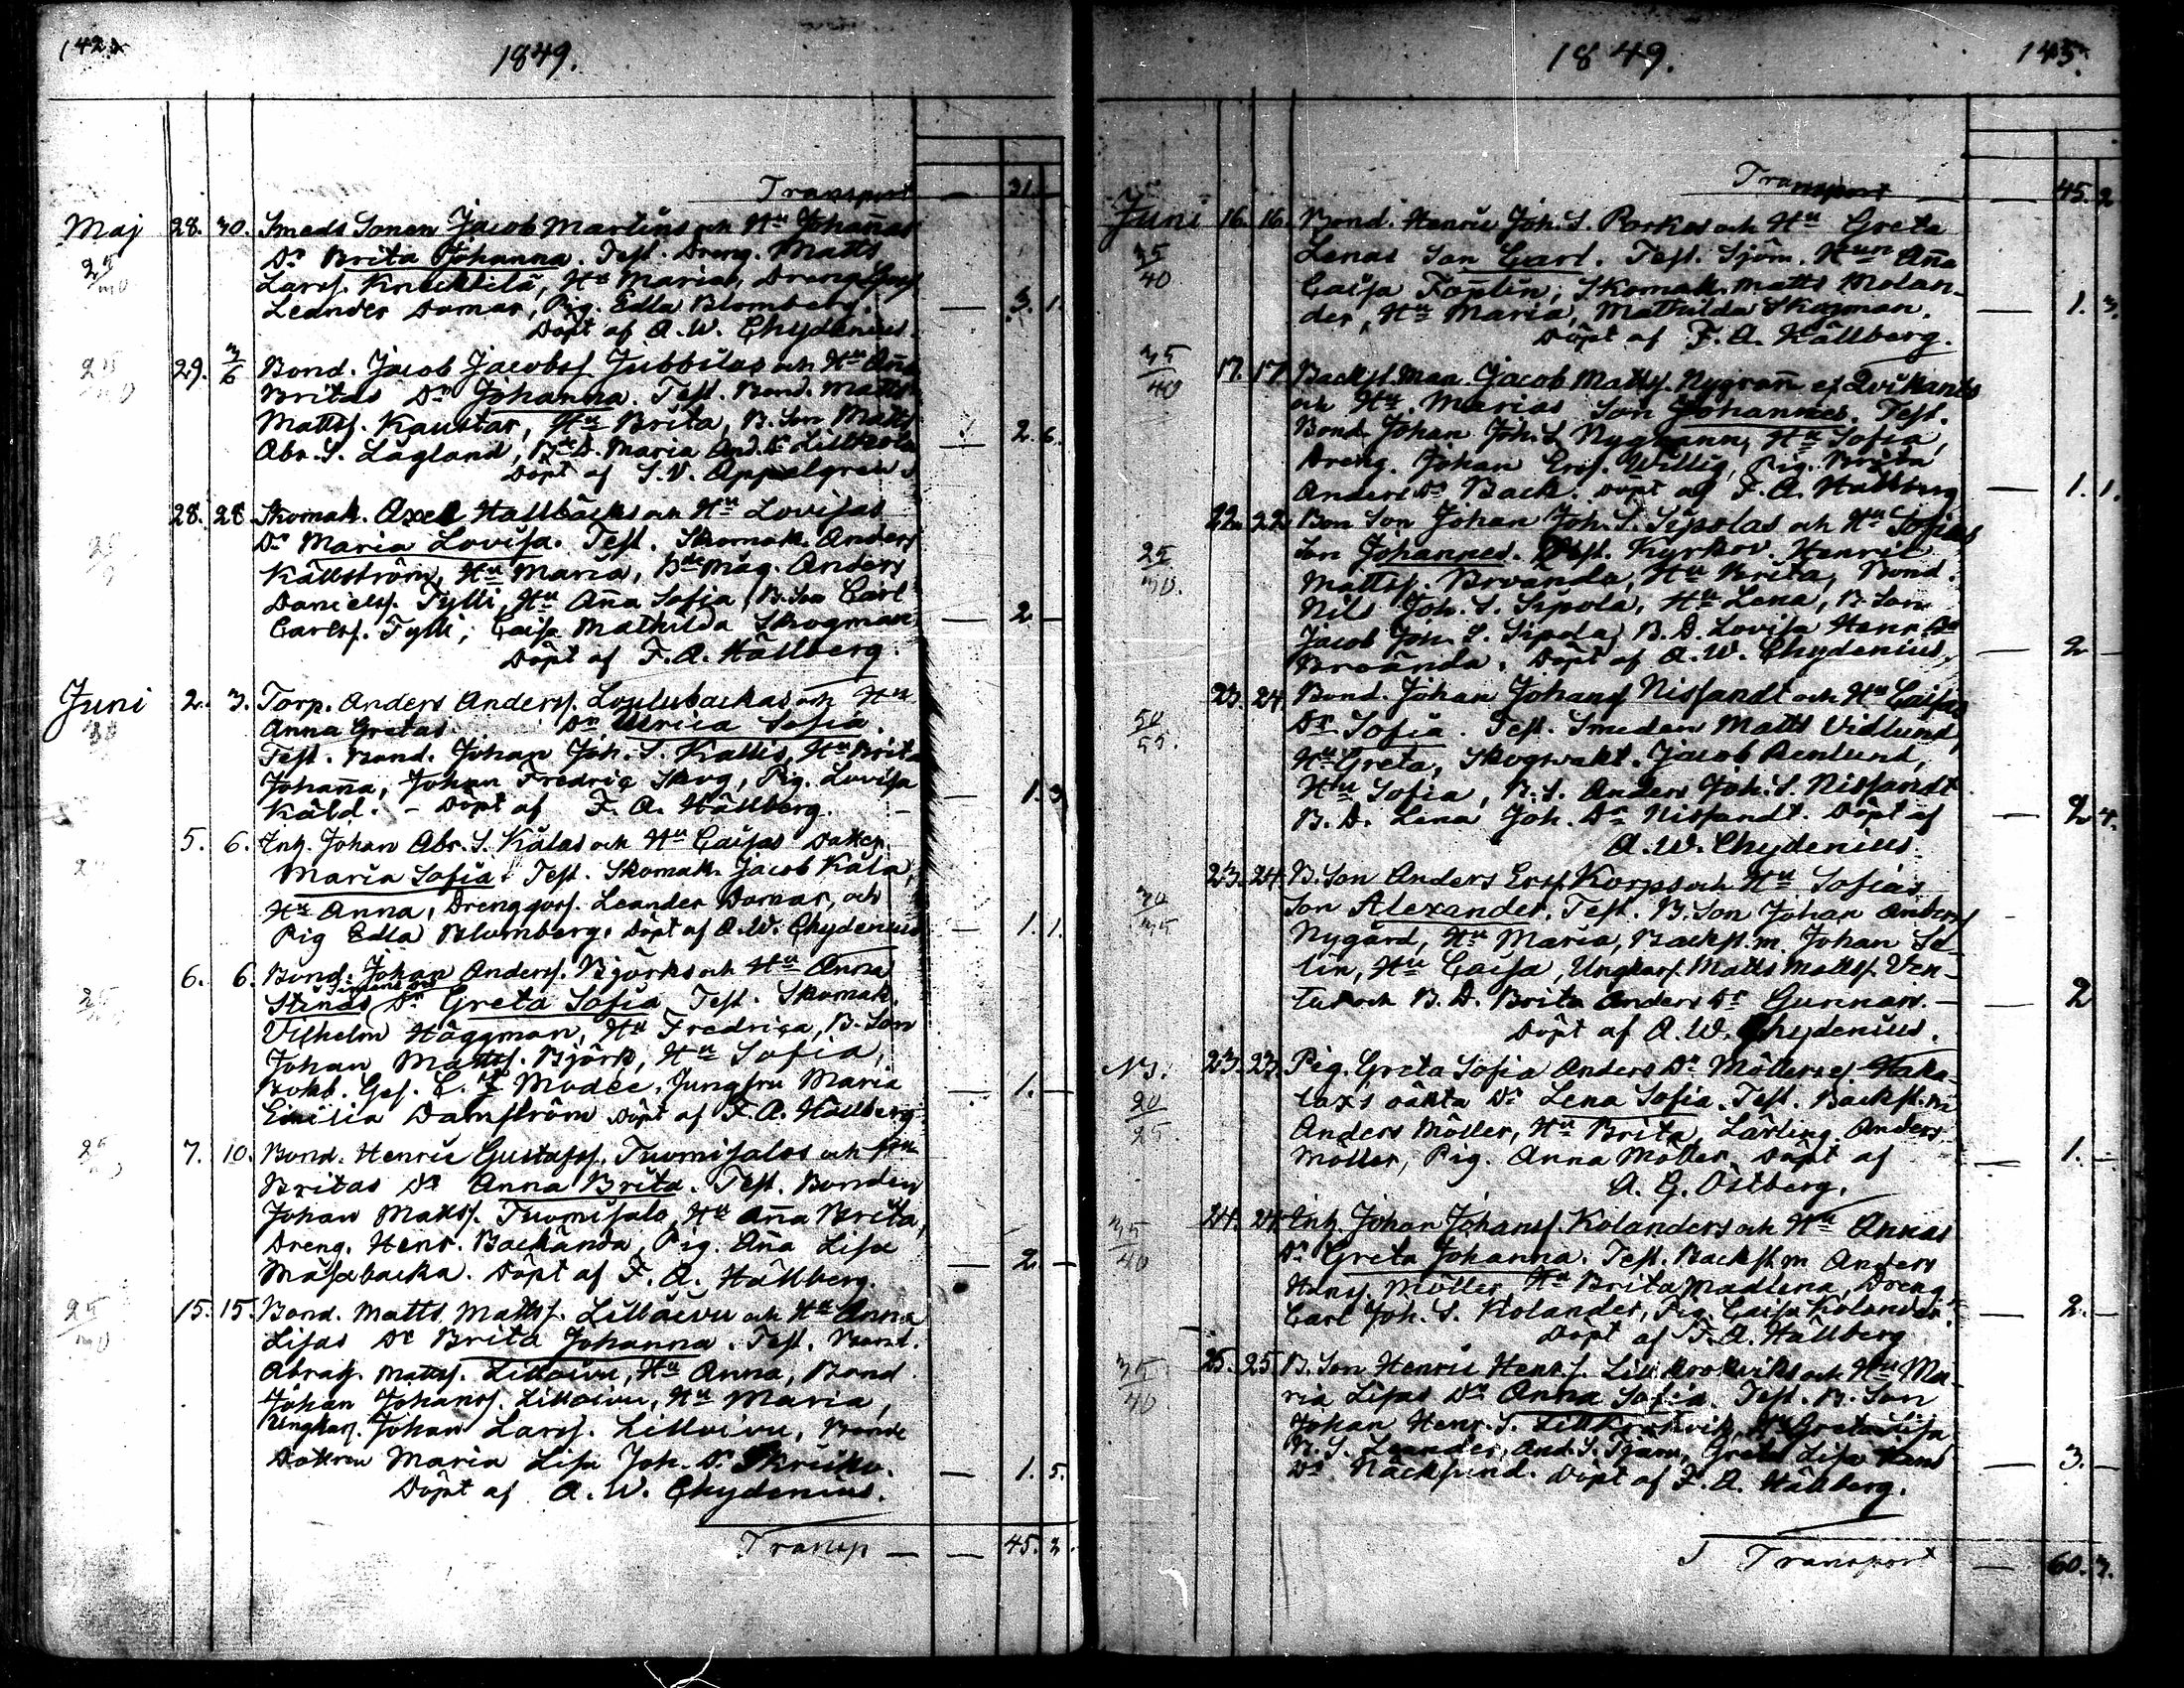 1849.
Transport — 31. —
Maj 28. 30. Smeds Sonen Jacob Martins och Hu Johannas
25/30 Dr Brita Johanna. Test. Dreng. Matts
Larss. Knucktila, Hu Maria, Dreng
Leander Domar, Pig. Edla Blomberg. — 3. 1.
Döpt af A. W. Chydenius.
29. 3/6 Bond. Jacob Jacobss. Jubbilas och Hu Aña
Britas Dr Johanna. Test. Bond. Matts
Mattss. Kaustar, Hu Brita, B. Son Matts
Abr. S. Lågland, Maria And. Dr — 2. 6.
Döpt af S. V. Appelgren
28. 28 Skomak. Axel Hallbäcks och Hu Lovisas
Dr Maria Lovisa. Test. Skomak. Anders
Källström, Hu Maria, Bde Måg. Anders
Danielss. Tylli, Hu Aña Sofia, B. Son Carl
Carlss. Tylli, Caisa Mathilda Skogman — 2 —
Döpt af F. A. Hällberg.
Juni 2. 3. Torp. Anders Anderss. Loulubackas och Hu
Anna Gretas Dr Ulrica Sofia.
Test. Bond. Johan Joh. S. Kallis, Hu Brita
Johaña, Johan Fredric Skog, Pig. Lovisa
Käld. – Döpt af F. A. Hällberg. — 1. 3
5. 6. Inh. Johan Abr. S. Kålas och Hu Caisas Dotter
Maria Sofia. Test. Skomak. Jacob Kåla,
Hu Anna, Drenggoss. Leander Domar, och
Pig Edla Blomberg. Döpt af A. W. Chydenius — 1. 1.
6. 6. Bond. Johan Anderss. Björks och Hu Anna
Stinas Dr Greta Sofia Test. Skomak.
Vilhelm Häggman, Hu Fredrica, B. Son
Johan Mattss. Björk, Hu Sofia,
Bokb. Ges. C. J. Modée, Jungfru Maria — 1. —
Emilia Damström Döpt af F. A. Hällberg
7. 10. Bond. Henric Gustafss. Tuomisalos och Hu
Britas Dr Anna Brita. Test. Bonden
Johan Matss. Tuomisalo, Hu Aña Brita,
Dreng. Henr. Backända, Pig. Aña Lisa
Måsabacka. Döpt af F. A. Hällberg. — 2. —
25/30 15. 15. Bond. Matts Mattss. Lilloivu och Hu Anna
Lisas Dr Brita Johanna. Test. Bond.
Abrah. Mattss. Lilloivu, Hu Anna, Bond
Johan Johanss. Lilloivu, Hu Maria,
Ungkarl. Johan Larss. Lilloivu, Bonde
Dottren Maria Lisa Joh. Dr Skriko. — 1. 5.
Döpt af A. W. Chydenius.
Transp — — 45. 2.
1849. 143.
Transport — 45. 2
Juni 16. 16. Bond. Henric Joh. S. Porkos och Hu Greta
35/40 Lenas Son Carl. Test. Sjöm. Hun Aña
Caisa Forslin, Skomak. Matts Molan-
der, Hu Maria, Mathilda Skogman. — 1. 3.
Döpt af F. A. Hällberg.
35/40 17. 17. Backst. Man Jacob Mattss. Nygrañ ef Qvikants
och Hu Marias Son Johannes. Test.
Bond. Johan Joh. S. Nygrann, Hu Sofia,
Dreng. Johan Erss. Willig, Pig. Brita
Anders Dr Back. Döpt af F. A. Hällberg — 1. 1.
22. 22. Bon Son Johan Joh. S. Sipolas och Hu Sofias
25/30. Son Johannes. Test. Kyrkov. Henric
Mattss. Broända, Hu Brita, Bond.
Nils Joh. S. Sipola, Hu Lena, B. Son
Jacob Joh. S. Sipola, B. D. Lovisa Henr. Dr — 2 —
Broända. Döpt af A. W. Chydenius.
23. 24. Bond. Johan Johans Nissandt och Hu Caisas
50/55. Dr Sofia. Test. Smeden Matts Vidlund,
Hu Greta, Skogsvakt. Jacob Renlund,
Hu Sofia, B. S. Anders Joh. S. Nissandt
B. D. Lena Joh. Dr Nissandt. Döpt af — 2 4.
A. W. Chydenius.
23. 24. B. Son Anders Erss. Korps och Hu Sofias
30/35 Son Alexander. Test. B. Son Johan Anderss
Nygård, Hu Maria, Backst. m Johan Se-
lin, Hu Caisa, Ungkarl. Matts Mattss. Ven-
tus och B. D. Brita Anders Dr Gunnar. — 2
Döpt af A. W. Chydenius.
23. 23. Pig. Greta Sofia Anders Dr Möllers ef. Haka-
20/25. laxs oäkta Dr Lena Sofia. Test. Backst. m
Anders Möller, Hu Brita, Lärling. Anders
Möller, Pig. Anna Möller Döpt af — 1. —
A. G. Östberg.
35/40 24. 24. Inh. Johan Johanss. Kolanders och Hu Annas
Dr Greta Johanna. Test. Backst. m Anders
Hanss. Möller, Hu Brita Madlena, Dreng.
Carl Joh. S. Kolander, Pig. Caisa Kolander. — 2. —
Döpt af F. A. Hällberg
35/40 25. 25 B. Son Henric Henr. S. Lillkrokviks och Hu Ma-
ria Lisas Dr Anna Sofia. Test. B. Son
Johan Henr. S. Lillkrokvik, Hu Greta Lisa
B. S. Leander And. S. Greta Lisa Hans — 3. —
Dr Näcksund. Döpt af F. A. Hällberg.
Transport — 60. 3.